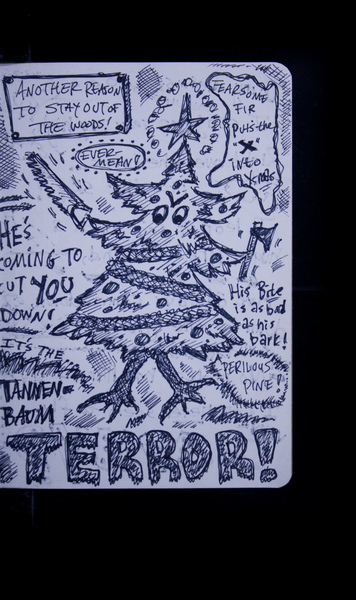 ANOTHER REASON
TO STAY OUT OF
THE WOODS!
FEARSOME
FIR
Puts the
X
INTO
Xmas
EVER-
MEAN!
HE'S
COMING TO
CUT YOU
DOWN!
His Bite
is as bad
as his
bark!
IT'S THE
TANNEN=
BAUM
PERILOUS
PINE!
TERROR!